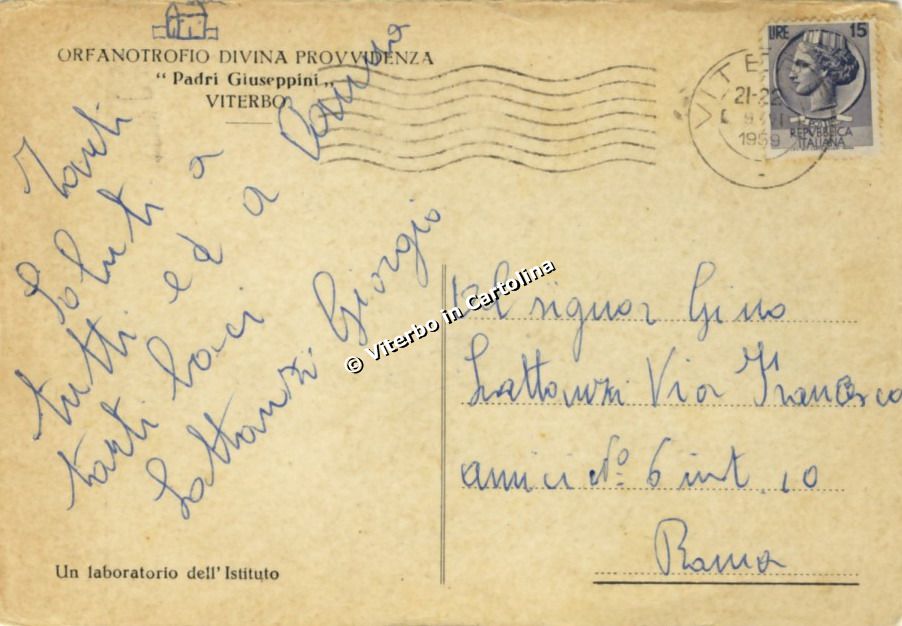 ORFANOTROFIO DIVINA PROVVIDENZA
" Padri Giuseppini "
VITERBO
LIRE 15
REPUBBLICA
ITALIANA
VITE
21-22
1959
Tanti
Saluti a
tutti ed a
tanti baci
Lattanzi Giorgio
© Viterbo in Cartolina
Al signor Gino
Lattanzi Via Francesco
amici N° 6 int. 10
Roma
Un laboratorio dell'Istituto